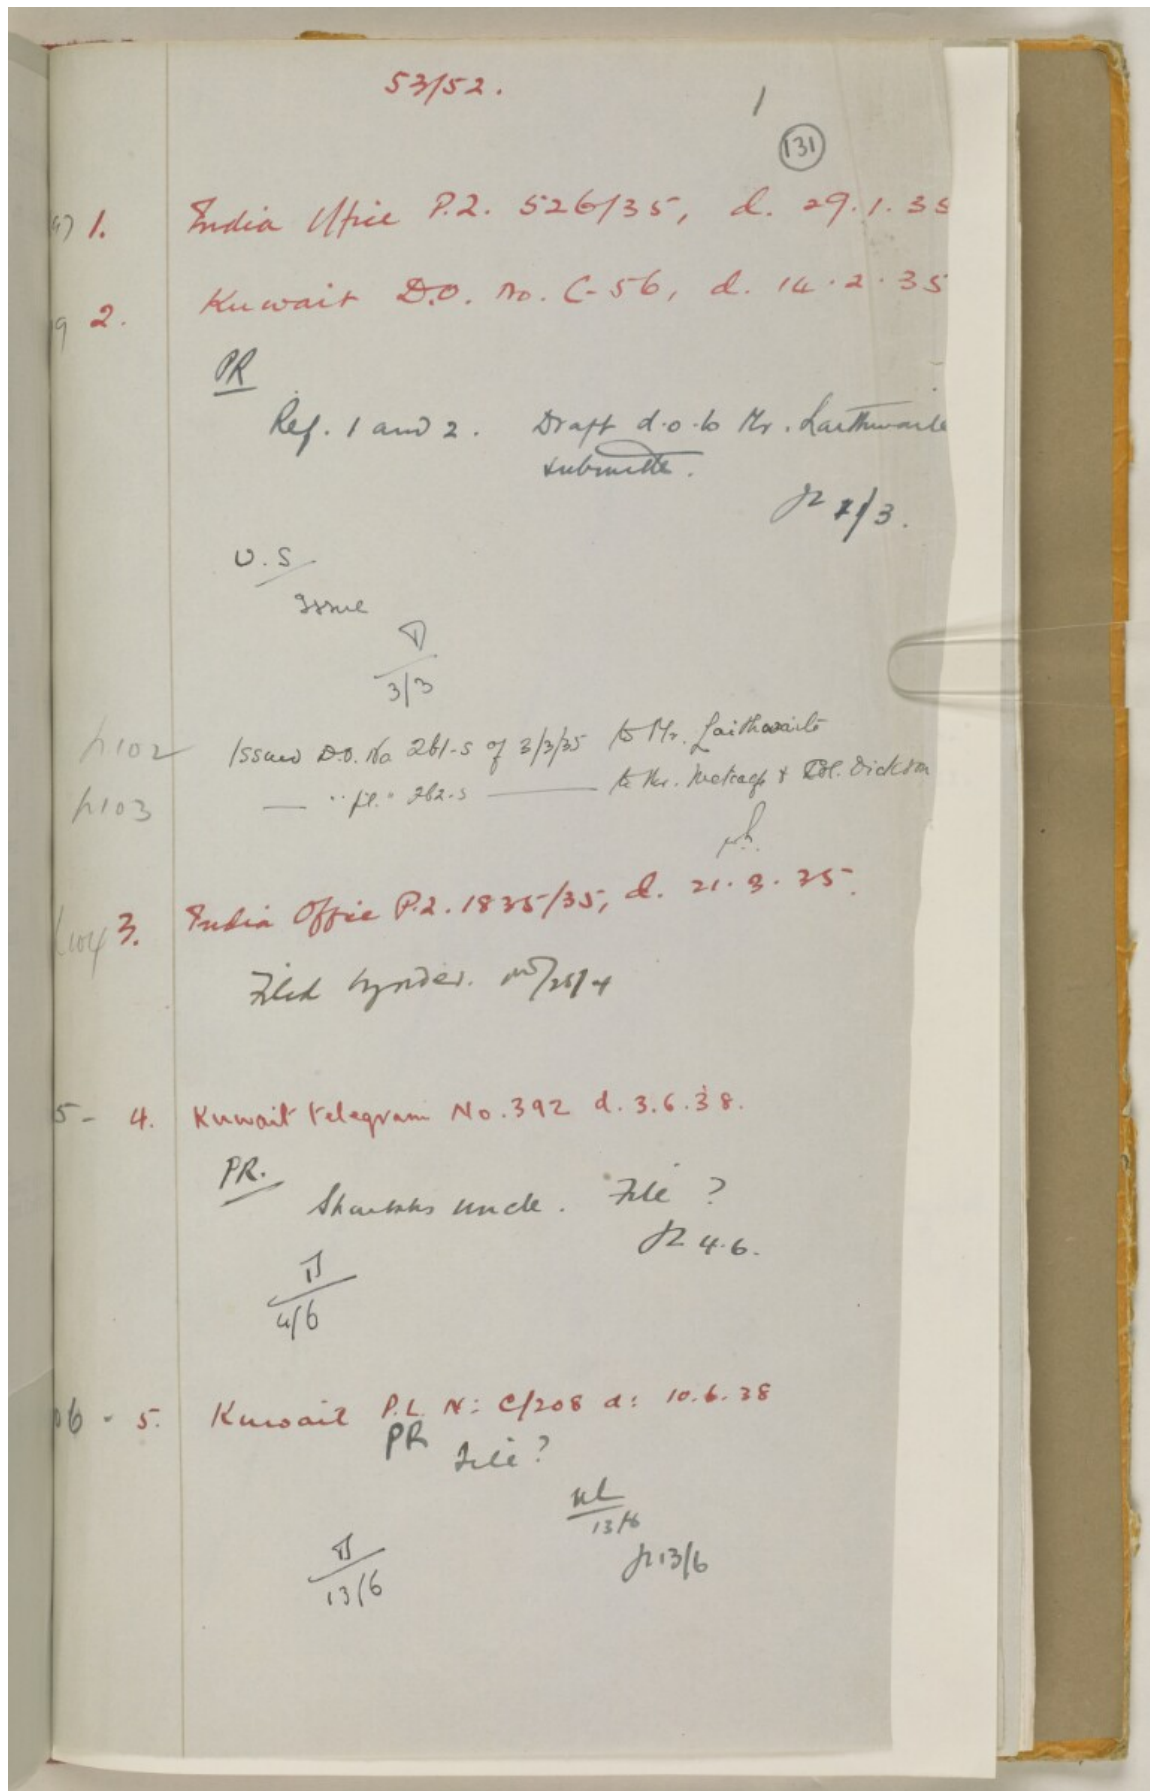 53/52.
1
131
1. India Office P.Z. 526/35, d. 29.1.35
2. Kuwait D.O. No. C-56, d. 14.2.35
PR
Ref. 1 and 2. Draft d.o. to Mr. Laithwaite
submitted.
/3.
U.S
Issue
3/3
p102 Issued D.O. No 261-S of 3/3/35 to Mr. Laithwaite
p103 — " p.l. " 262-S — to Mr. Metcalfe & Col. Dickson
3. India Office P.Z. 1835/35, d. 21.3.35.
Filed by order. 25/4
5- 4. Kuwait telegram No. 392 d. 3.6.38.
PR.
Shaikh's uncle. File ?
4.6.
4/6
06 - 5. Kuwait P.L. N: C/208 d: 10.6.38
PR
File ?
13/6
13/6
13/6